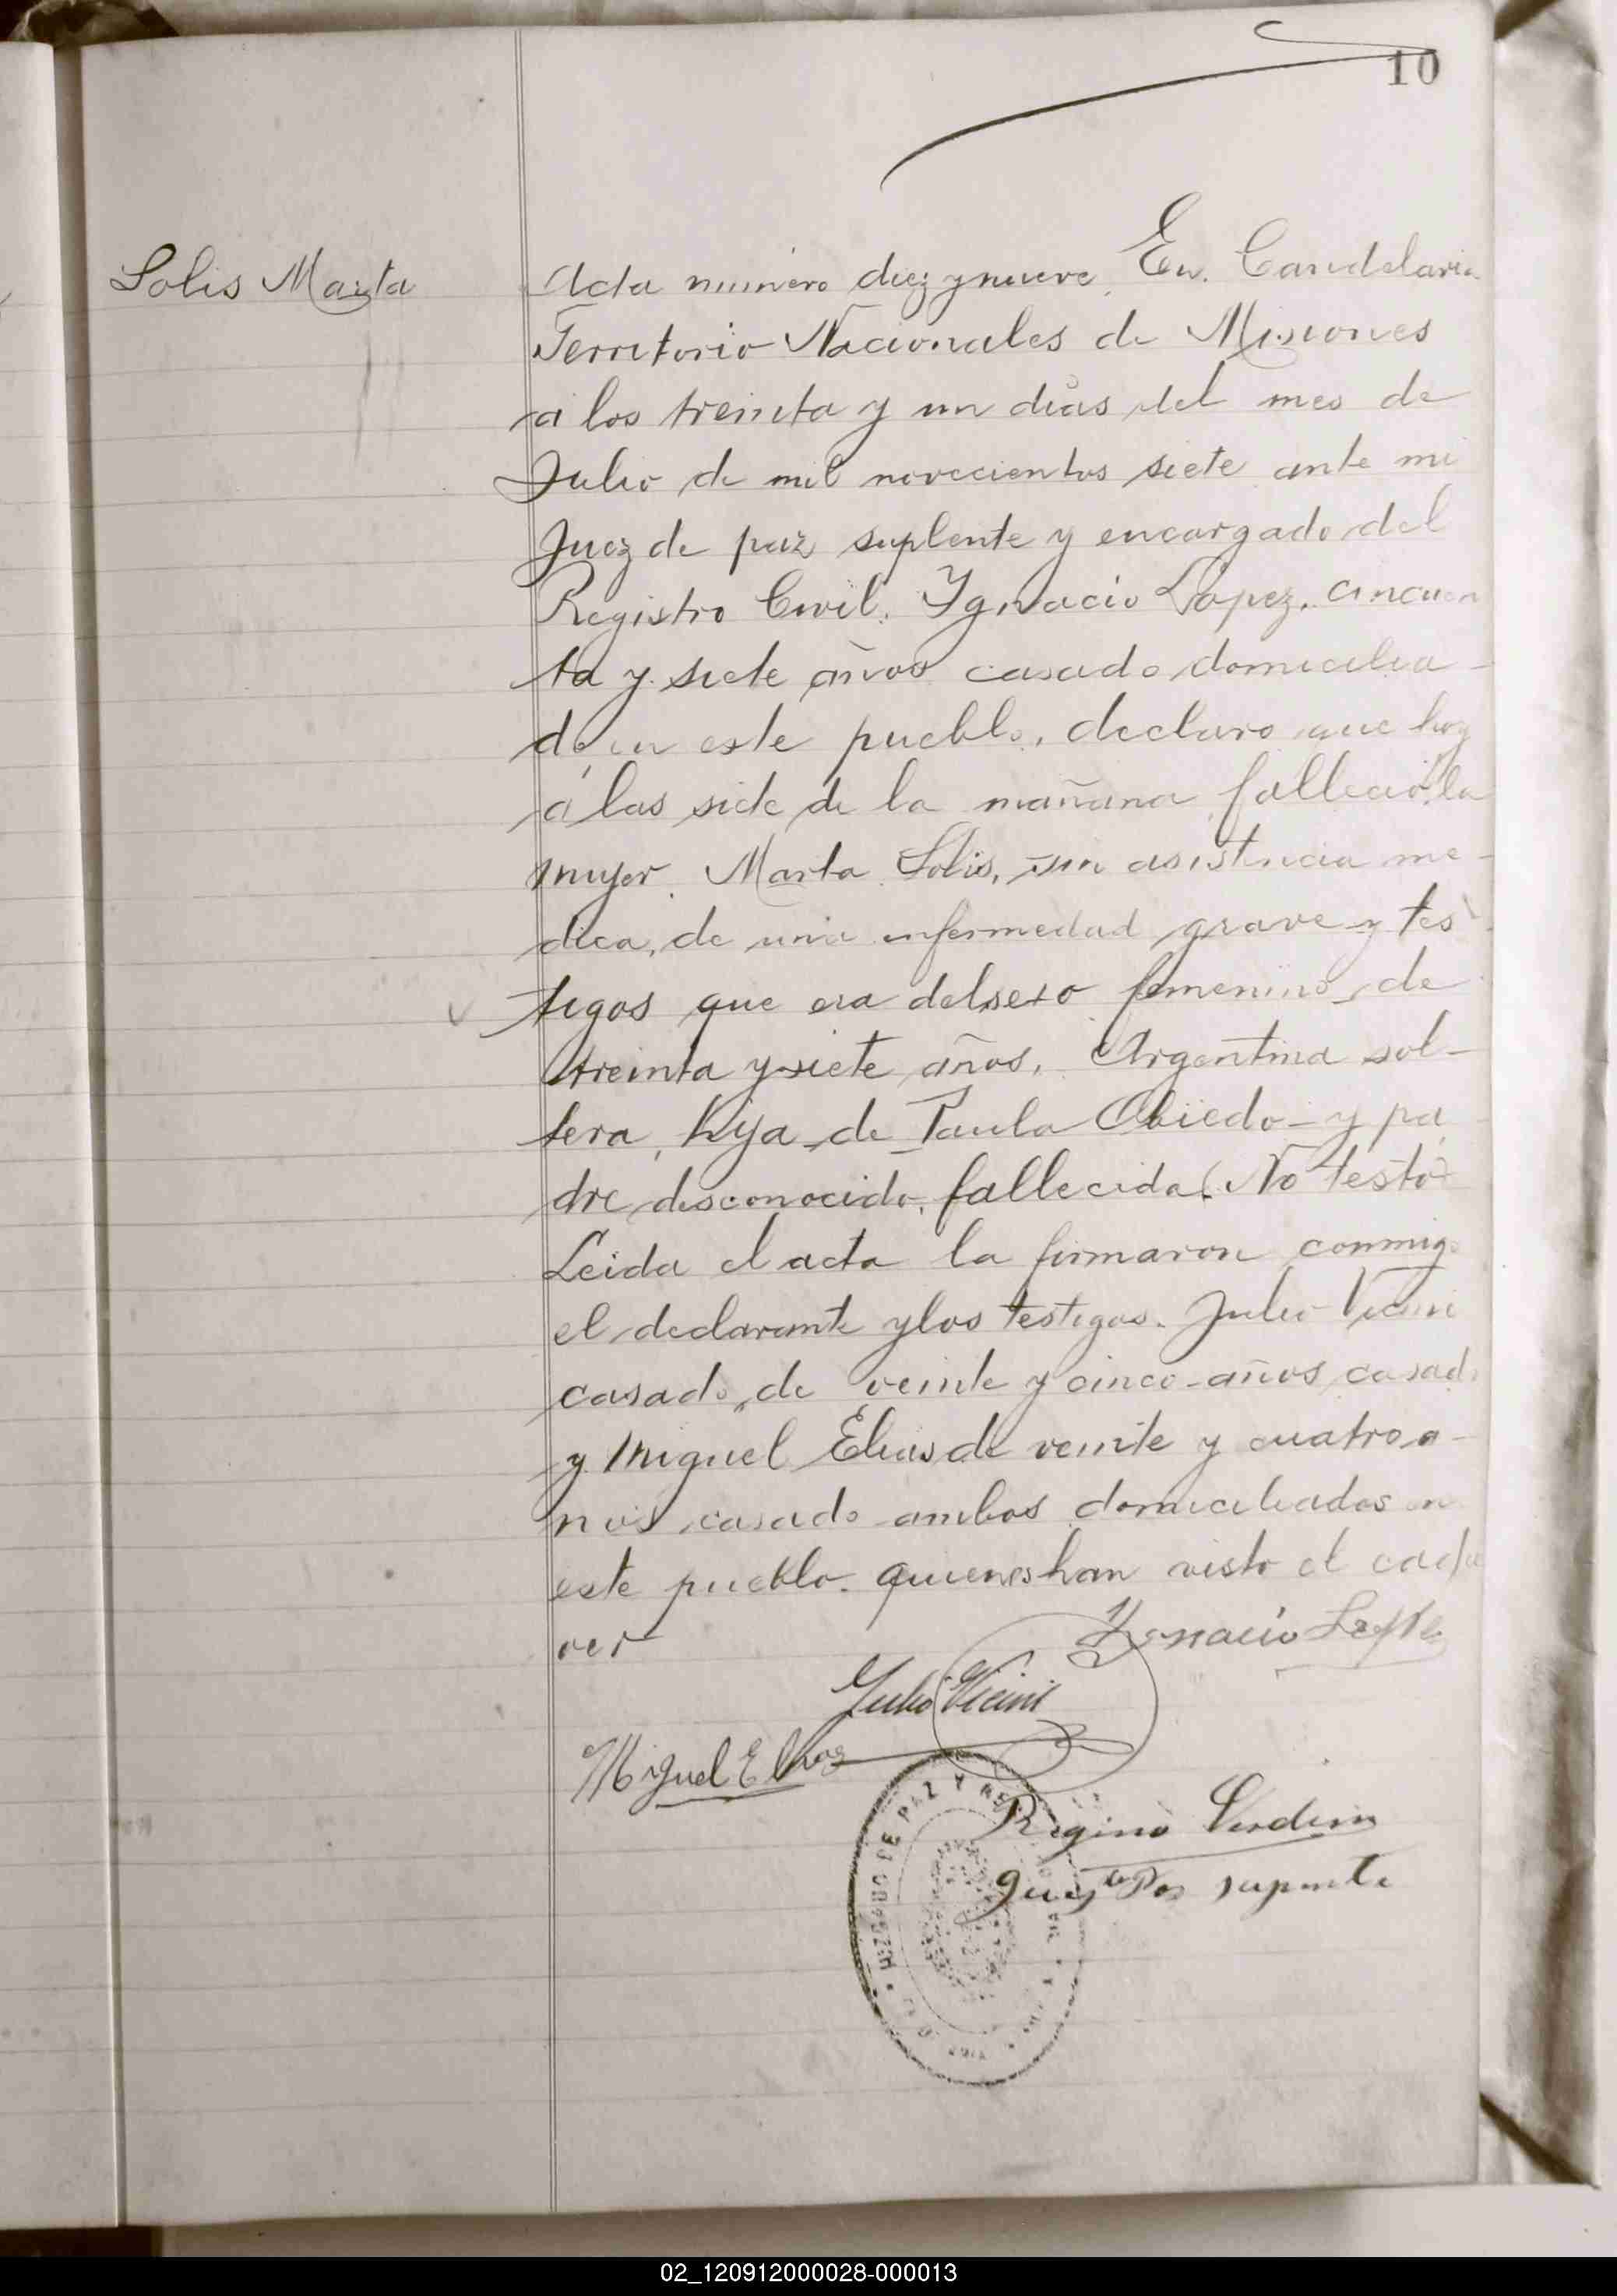 10
Solis Marta
Acta número diez y nueve. En Candelaria
Territorio Nacionales de Misiones
á los treinta y un dias del mes de
Julio de mil novecientos siete ante mi
Juez de paz suplente y encargado del
Registro Civil. Ygnacio Lopez, cincuen
ta y siete años casado domicilia-
do en este pueblo, declaro que hoy
á las siete de la mañana falleció la
mujer Marta Solis, sin asistencia me-
dica, de una enfermedad grave y tes
tigos que era del sexo femenino de
treinta y siete años, Argentina sol-
tera, hija de Paula Obiedo y pa
dre desconocido, fallecida. No testó
Leida el acta la firmaron conmigo
el declarante y los testigos. Julio Vicini
casado, de veinte y cinco años casado
y Miguel Elias de veinte y cuatro a-
ños casado ambos domiciliados en
este pueblo. quienes han visto el cada
ver
Ygnacio Lopez
Julio Vicini
Miguel Elias
JUZGADO DE PAZ Y RE
Regino
Juez de Paz suplente
02_120912000028-000013